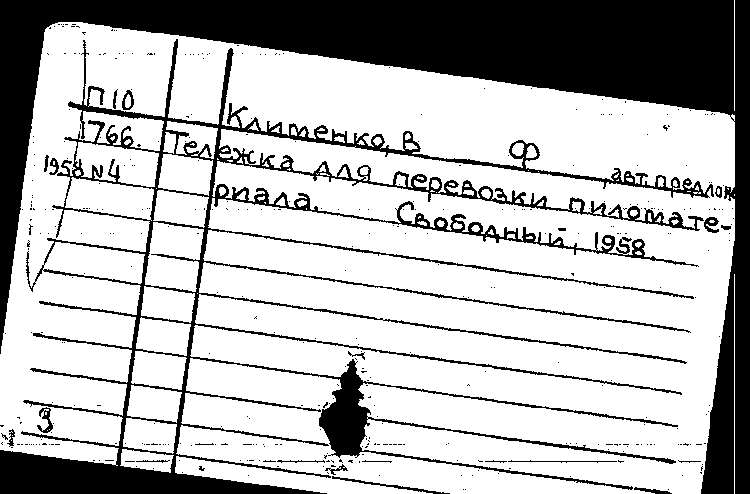 П10 Клименко, В Ф , авт. предлож
1766. Тележка для перевозки пиломате-
1958 N4 риала. Свободный, 1958.
3